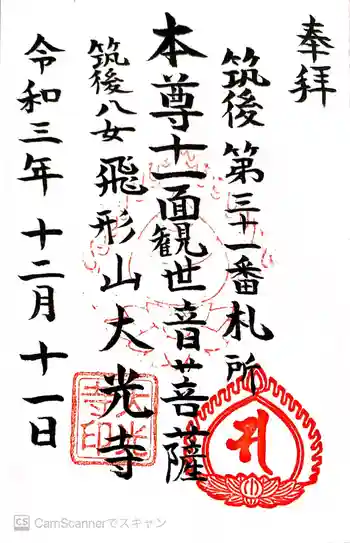 奉拝
筑後第三十一番札所
本尊十一面観世音菩薩
筑後八女飛形山大光寺
令和三年十二月十一日
大光
寺印
CS CamScannerでスキャン